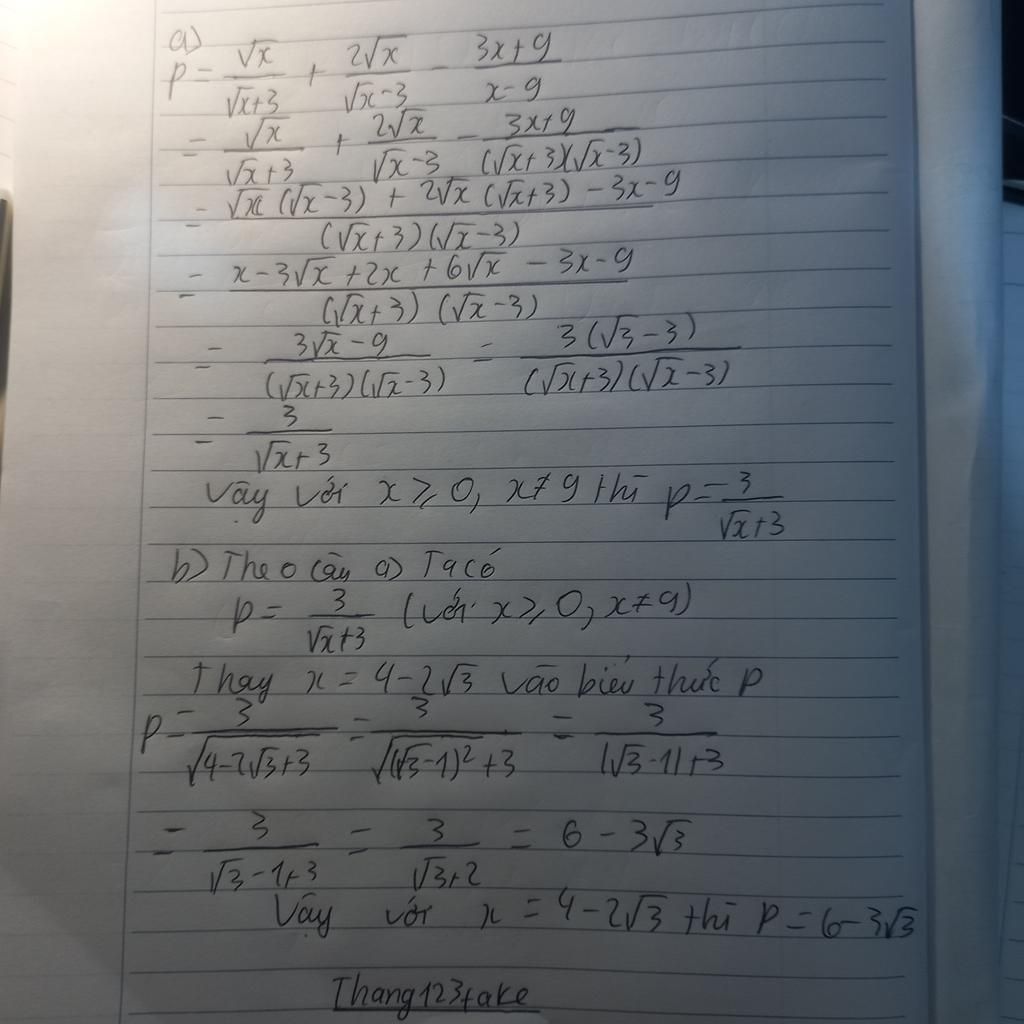 a)
P = √x/(√x+3) + 2√x/(√x-3) - (3x+9)/(x-9)
= √x/(√x+3) + 2√x/(√x-3) - (3x+9)/((√x+3)(√x-3))
= (√x (√x-3) + 2√x (√x+3) - 3x-9)/((√x+3)(√x-3))
= (x-3√x+2x+6√x - 3x-9)/((√x+3)(√x-3))
= (3√x-9)/((√x+3)(√x-3)) = 3(√3-3)/((√x+3)(√x-3))
= 3/(√x+3)
Vậy với x ≥ 0, x ≠ 9 thì P = 3/(√x+3)
b) Theo câu a) Ta có
P = 3/(√x+3) (với x ≥ 0, x ≠ 9)
Thay x = 4-2√3 vào biểu thức P
P = 3/√(4-2√3+3) = 3/(√((√3-1)²)+3) = 3/(|√3-1|+3)
= 3/(√3-1+3) = 3/(√3+2) = 6-3√3
Vậy với x = 4-2√3 thì P = 6-3√3
Thang123fake